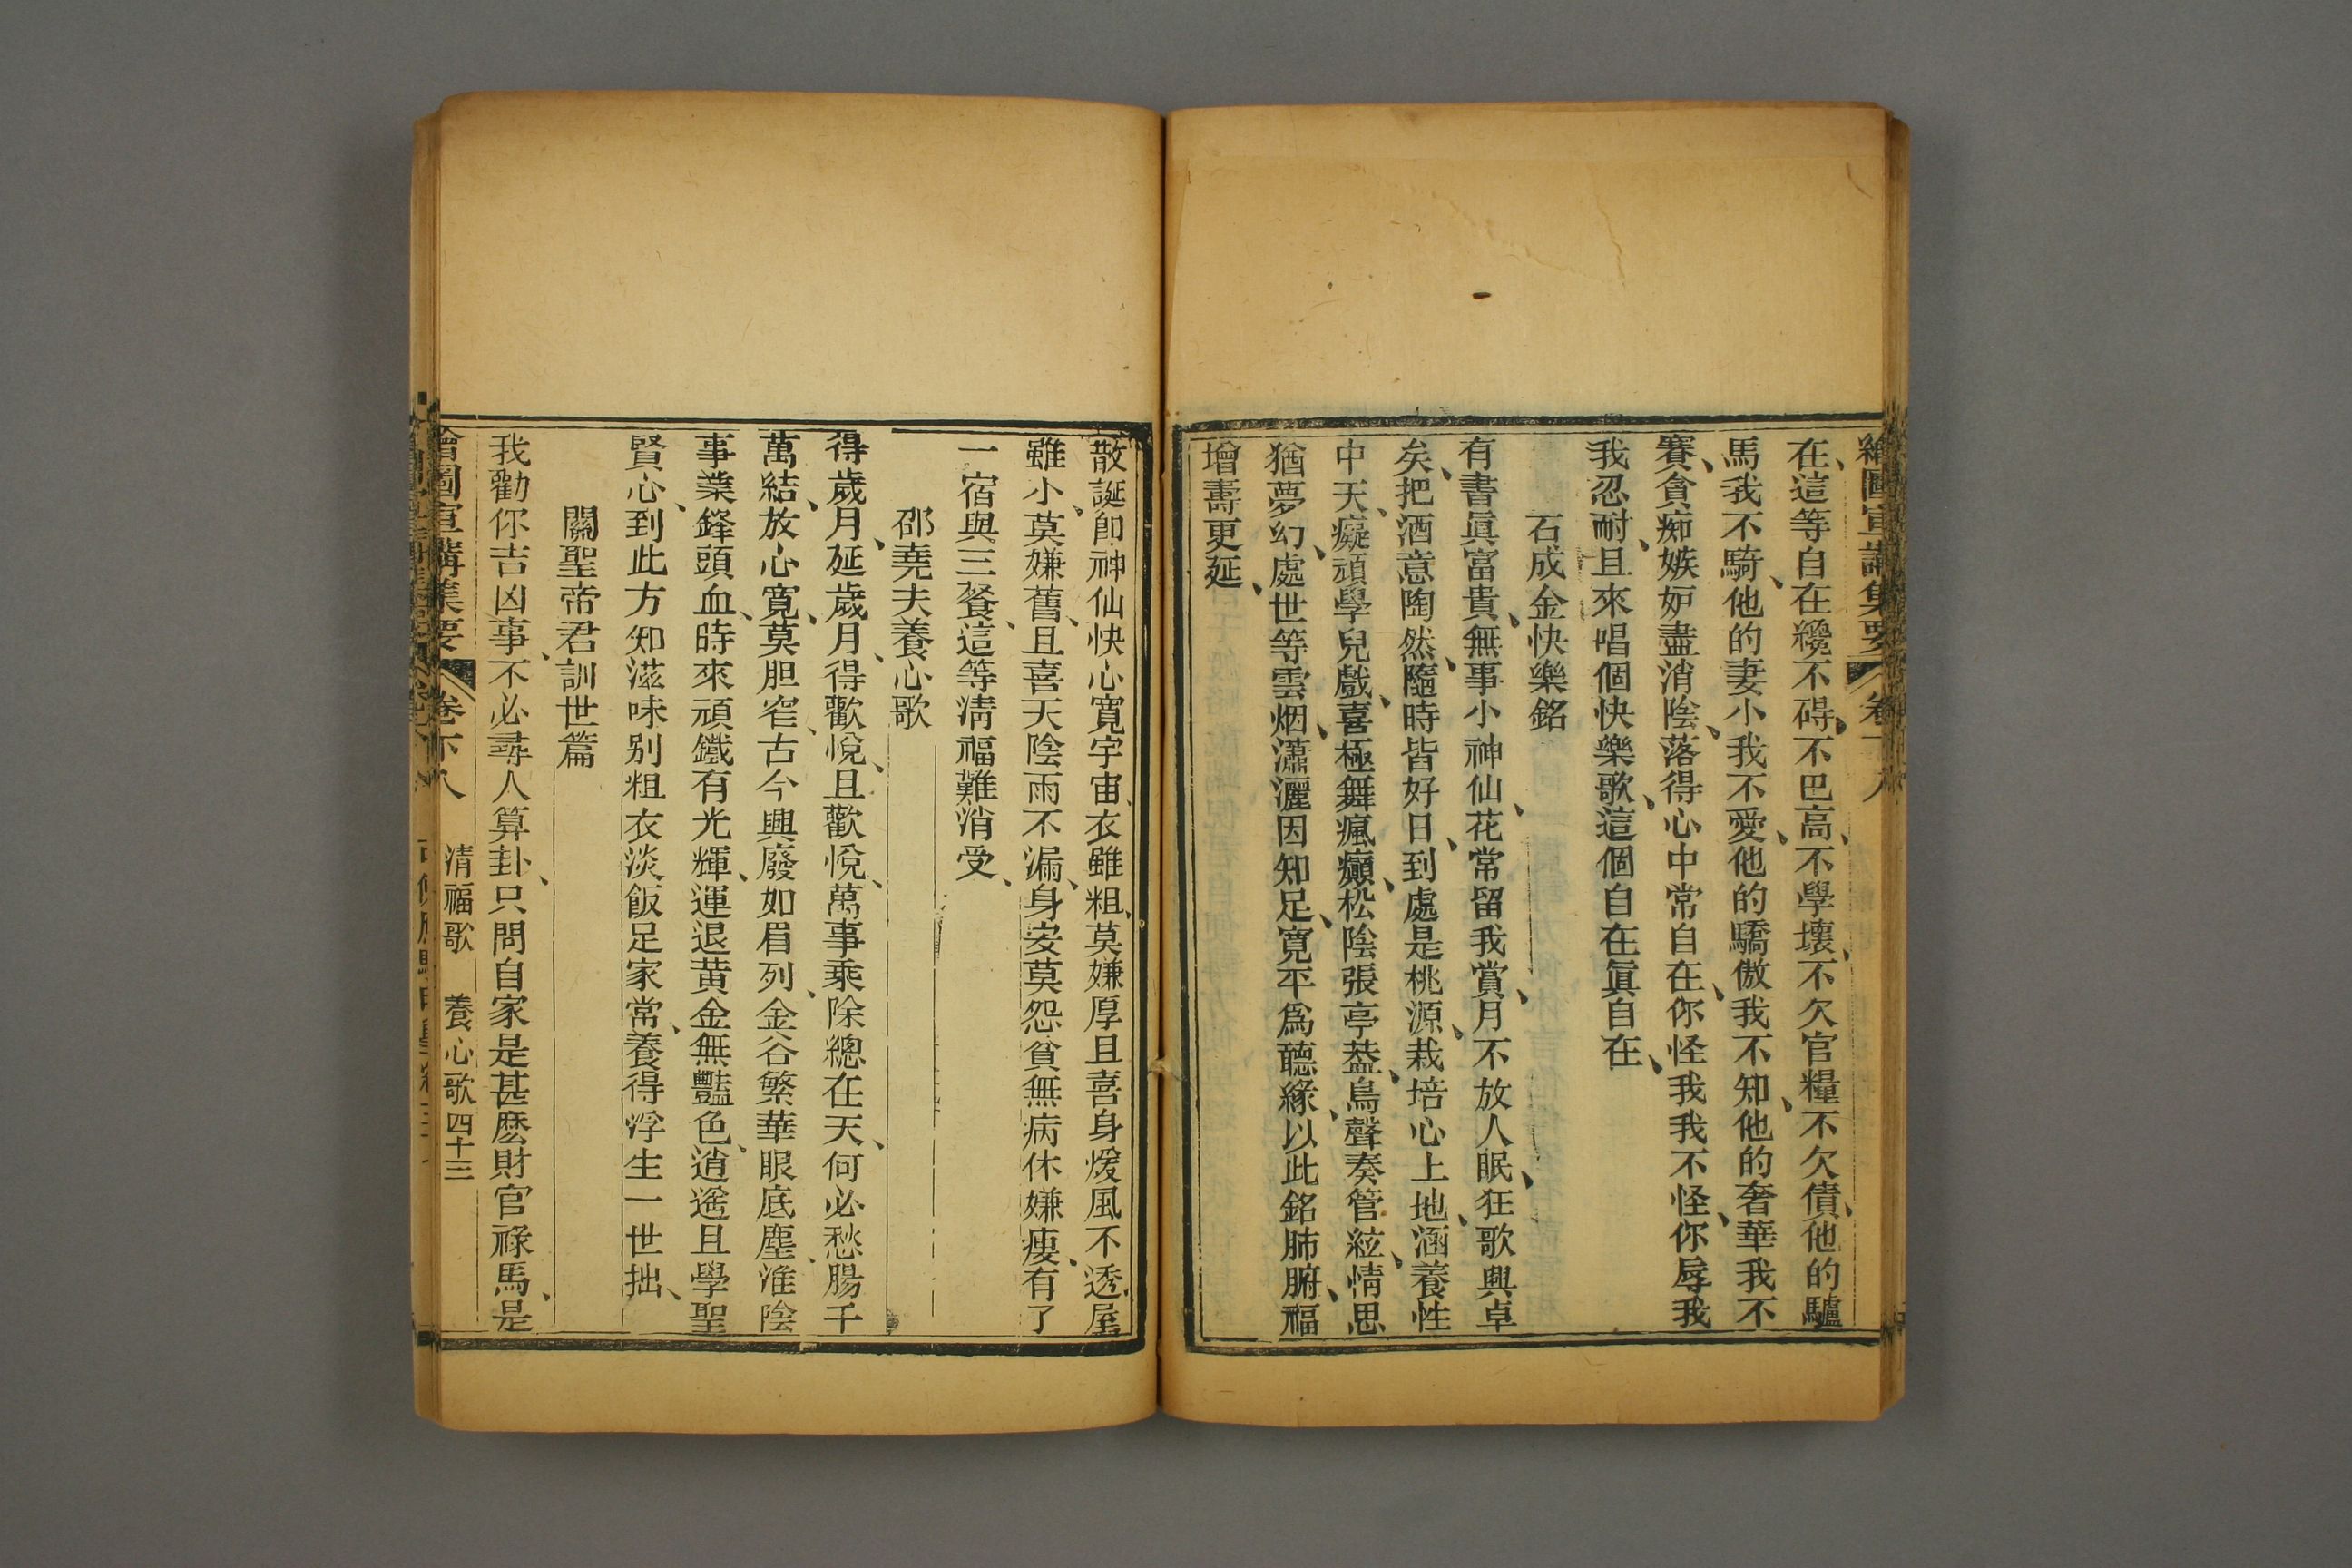 繪圖宣講集要
在、這等自在纔不碍、不巴高、不學壞、不欠官糧不欠債、他的驢
馬我不騎、他的妻小我不愛、他的驕傲我不知、他的奢華我不
賽、貪痴嫉妒盡消除、落得心中常自在、你怪我我不怪、你辱我
我忍耐、且來唱個快樂歌、這個自在眞自在、
石成金快樂銘
有書眞富貴、無事小神仙、花常留我賞、月不放人眠、狂歌興卓
矣、把酒意陶然、隨時皆好日、到處是桃源、栽培心上地、涵養性
中天、癡頑學兒戲、喜極舞瘋癲、松陰張亭葢、鳥聲奏管絃、情思
猶夢幻、處世等雲烟、瀟灑因知足、寬平爲聽緣、以此銘肺腑、福
增壽更延、
散誕卽神仙快心寬宇宙、衣雖粗、莫嫌厚且喜身煖風不透、屋
雖小、莫嫌舊、且喜天陰雨不漏、身安莫怨貧無病休嫌瘦、有了
一宿與三餐、這等清福難消受、
邵堯夫養心歌
得歲月、延歲月、得歡悅、且歡悅、萬事乘除總在天、何必愁腸千
萬結、放心寬、莫胆窄、古今興廢如眉列、金谷繁華眼底塵、淮陰
事業鋒頭血、時來頑鐵有光輝、運退黄金無豔色、逍遙且學聖
賢心、到此方知滋味别粗衣淡飯足家常、養得浮生一世拙、
關聖帝君訓世篇
我勸你吉凶事、不必尋人算卦、只問自家是甚麽財官祿馬、是
繪圖宣講集要 卷下八 清福歌 養心歌 四十三